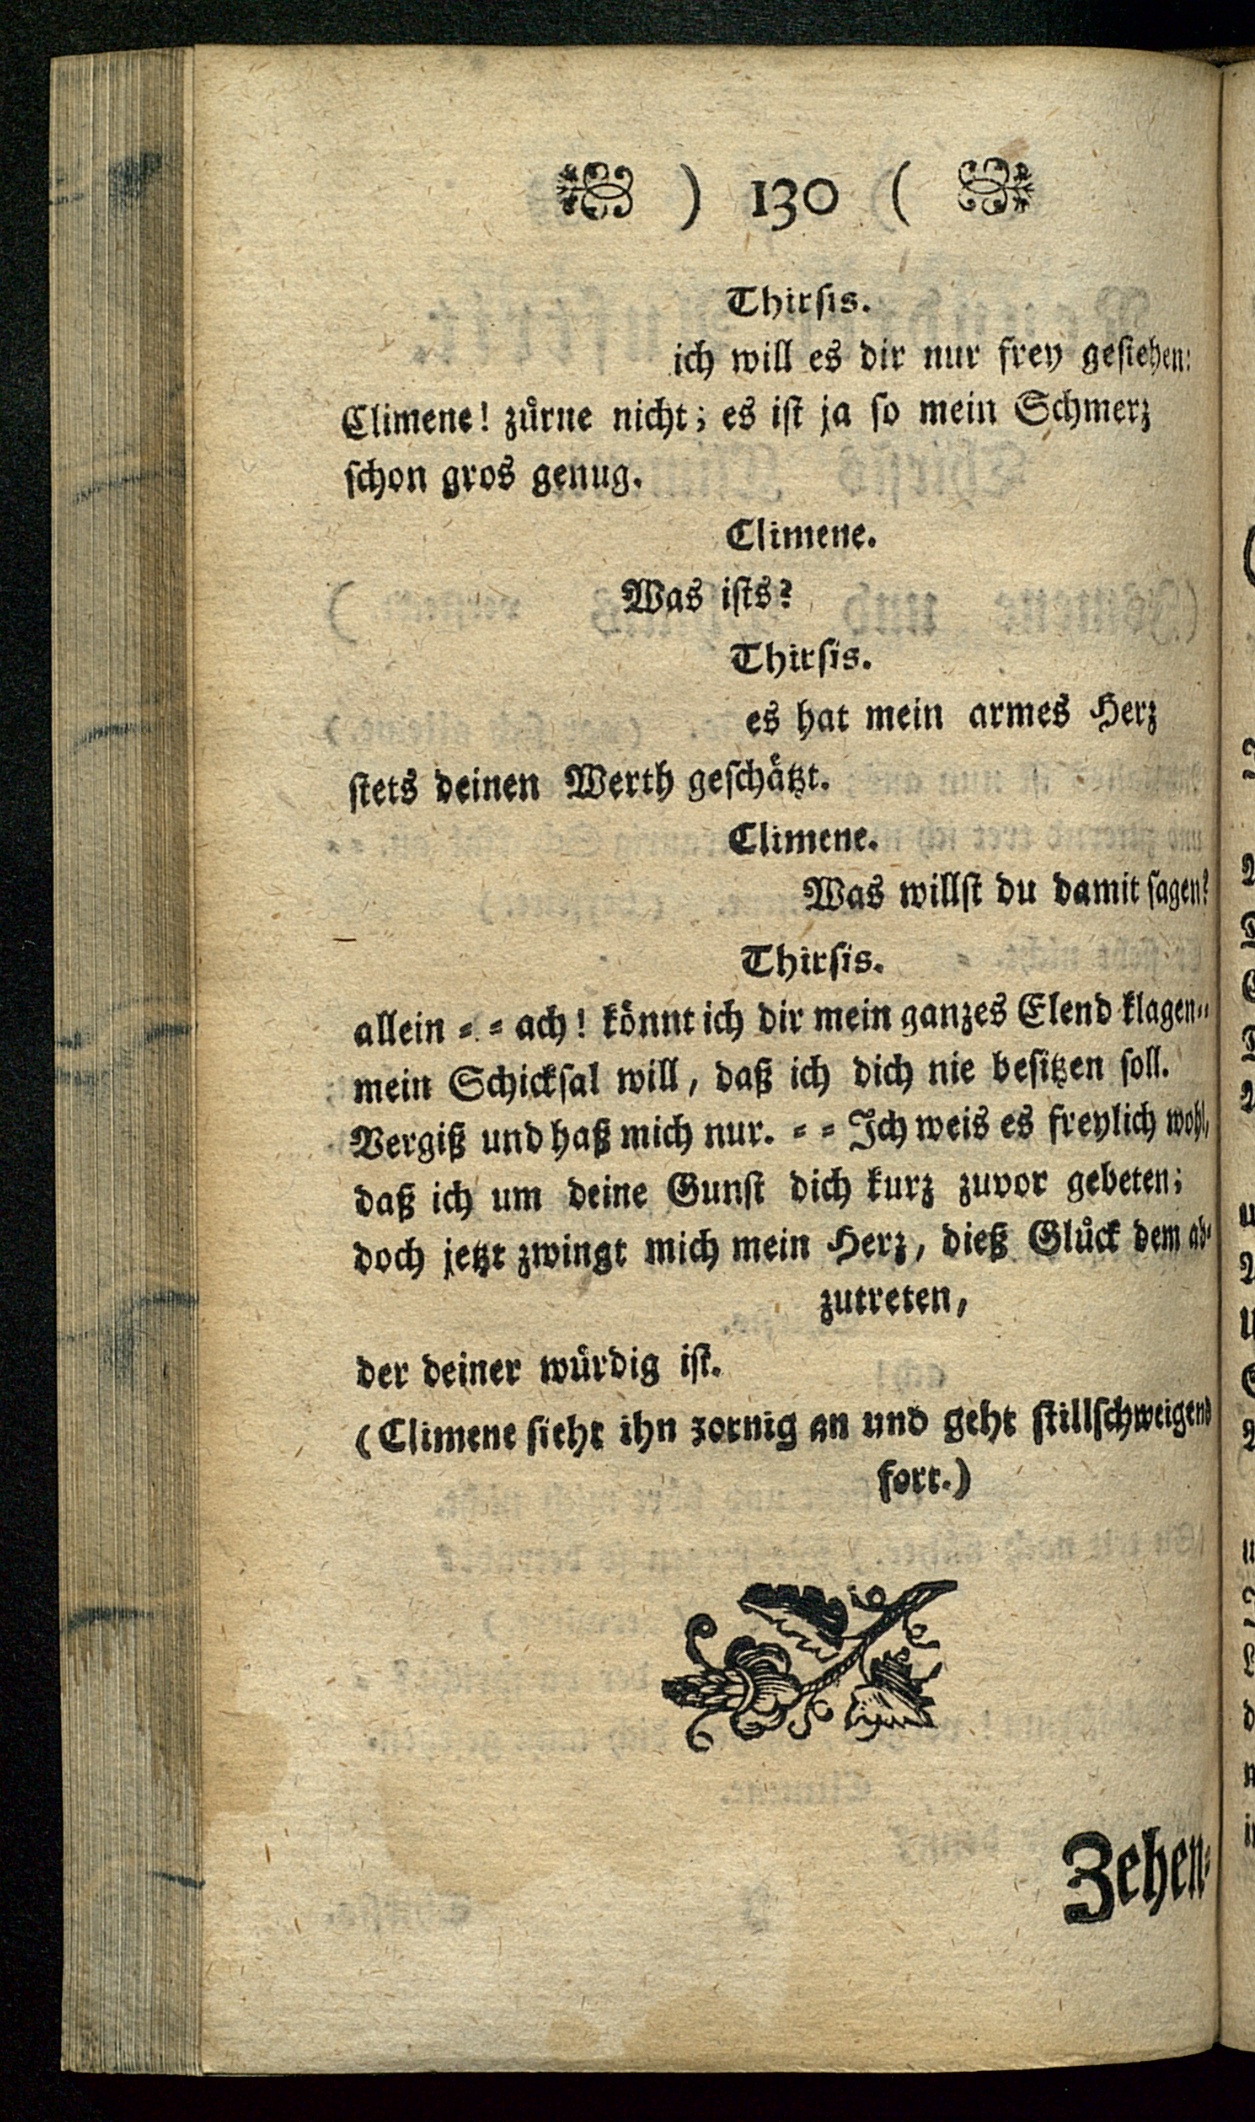 ) 130 (
Thirsis.
ich will es dir nur frey gestehen:
Climene! zürne nicht; es ist ja so mein Schmerz
schon gros genug.
Climene.
Was ists?
Thirsis.
es hat mein armes Herz
stets deinen Werth geschätzt.
Climene.
Was willst du damit sagen?
Thirsis.
allein = = ach! könnt ich dir mein ganzes Elend klagen = =
mein Schicksal will, daß ich dich nie besitzen soll.
Vergiß und haß mich nur. = = Ich weis es freylich wohl,
daß ich um deine Gunst dich kurz zuvor gebeten;
doch jetzt zwingt mich mein Herz, dieß Glück dem ab=
zutreten,
der deiner würdig ist.
(Climene sieht ihn zornig an und geht stillschweigend
fort.)
Zehen=